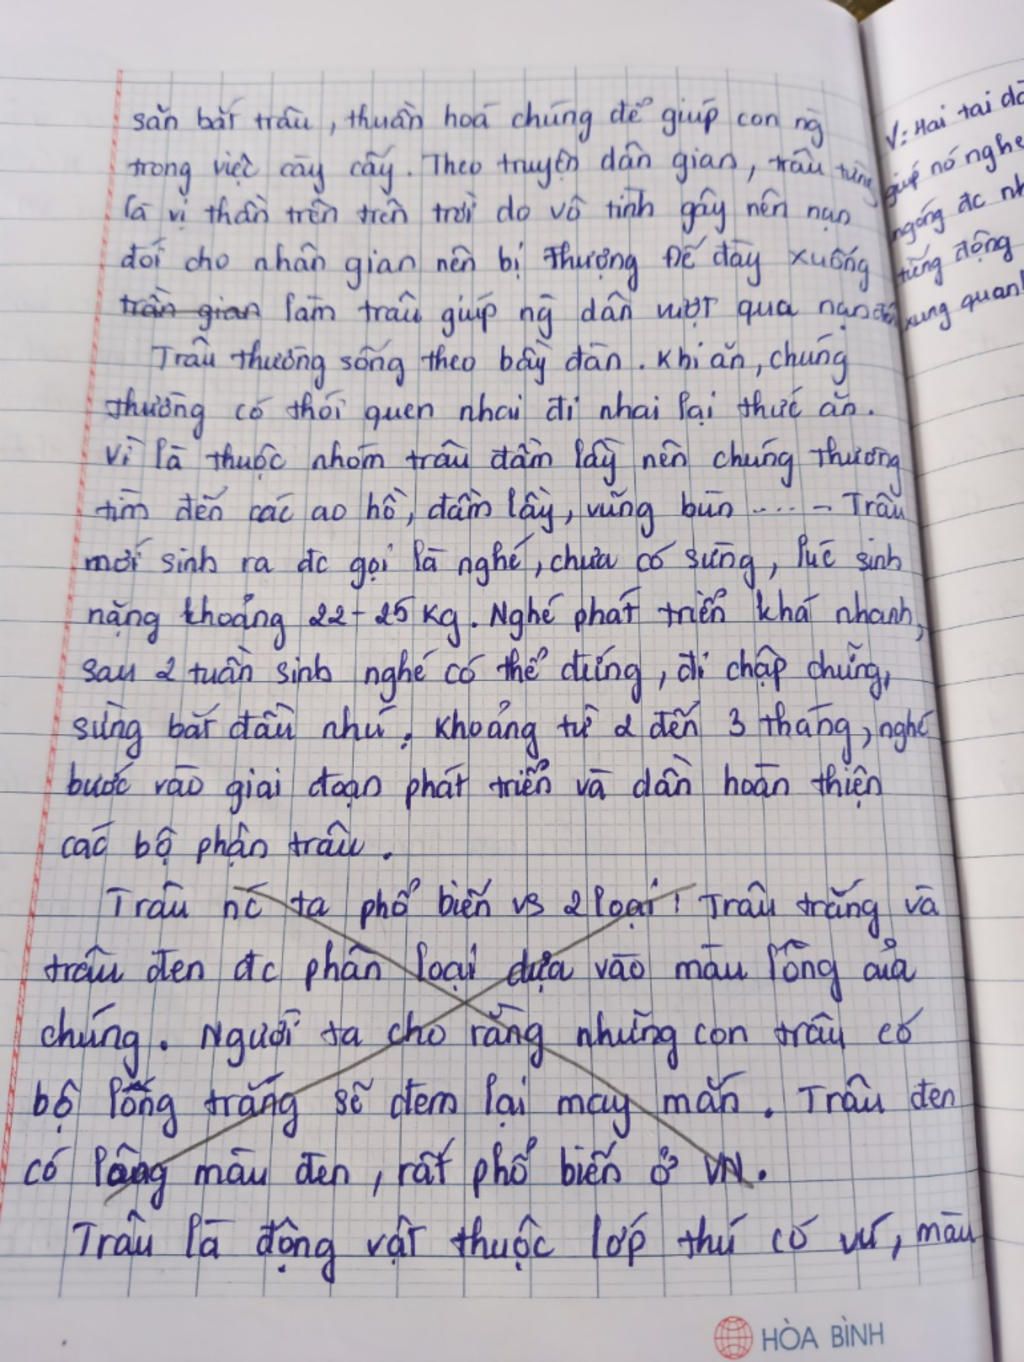 săn bắt trâu, thuần hoá chúng để giúp con ng
trong việc cày cấy. Theo truyện dân gian, trâu từng
là vị thần trên trên trời do vô tình gây nên nạn
đói cho nhân gian nên bị Thượng Đế đày xuống
trần gian làm trâu giúp ng dân vượt qua nạn đói
Trâu thường sống theo bầy đàn. Khi ăn, chúng
thường có thói quen nhai đi nhai lại thức ăn.
Vì là thuộc nhóm trâu đầm lầy nên chúng thường
tìm đến các ao hồ, đầm lầy, vũng bùn .... - Trâu
mới sinh ra đc gọi là nghé, chưa có sừng, lúc sinh
nặng khoảng 22-25 kg. Nghé phát triển khá nhanh,
sau 2 tuần sinh nghé có thể đứng, đi chập chững,
sừng bắt đầu nhú. Khoảng từ 2 đến 3 tháng, nghé
bước vào giai đoạn phát triển và dần hoàn thiện
các bộ phận trâu.
Trâu nc ta phổ biến vs 2 loại: Trâu trắng và
trâu đen đc phân loại dựa vào màu lông của
chúng. Người ta cho rằng những con trâu có
bộ lông trắng sẽ đem lại may mắn. Trâu đen
có lông màu đen, rất phổ biến ở VN.
Trâu là động vật thuộc lớp thú có vú, màu
V: Hai tai
giúp nó nghe
ngóng đc
tiếng động
xung quanh
HÒA BÌNH